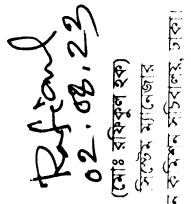 02.08.23
(মোঃ রফিকুল হক)
সিস্টেম ম্যানেজার
ন কমিশন সচিবালয়, ঢাকা।